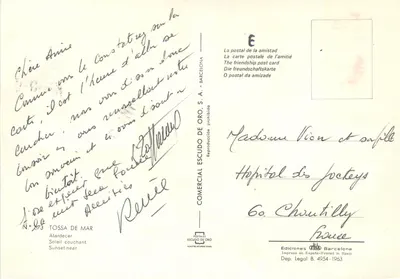 Chère Annie
Comme vous le constaterez sur la
carte, il est l'heure d'aller se
coucher, nous vous disons donc
bonsoir en vous renouvellant notre
bon souvenir et à vous disant à
bientôt.
J'ose espérer que
René
A-293 TOSSA DE MAR
Atardecer
Soleil couchant
Sunset-near
COMERCIAL ESCUDO DE ORO, S. A. - BARCELONA
ESCUDO DE ORO
E
La postal de la amistad
La carte postale de l'amitié
The friendship post card
Die freundschaftskarte
O postal da amizade
Madame Vion et sa fille
Hôpital des Jockeys
60. Chantilly
France
Ediciones Barcelona
Dep. Legal B. 4934-1963